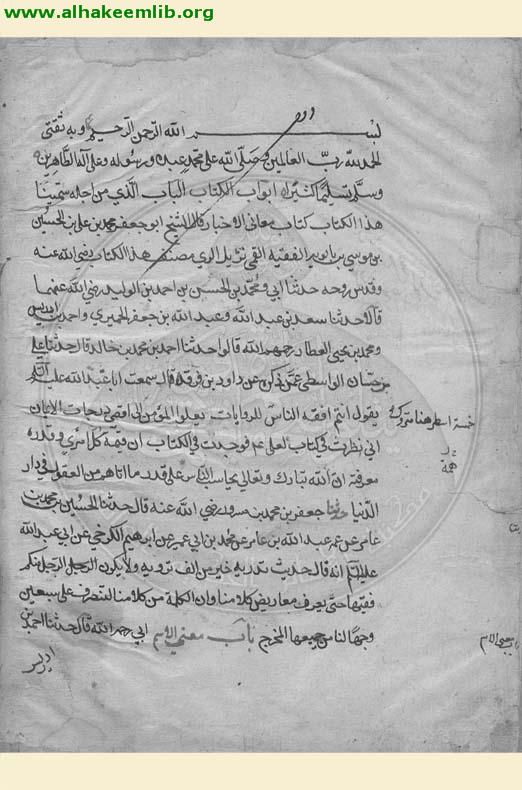 www.alhakeemlib.org
بسم الله الرحمن الرحيم وبه ثقتي
الحمد لله رب العالمين وصلى الله على محمد عبده ورسوله وعلى آله الطاهرين
وسلم تسليما كثيرا ابواب الكتاب الباب الذي من اجله سمينا
هذا الكتاب كتاب معاني الاخبار قال الشيخ ابو جعفر محمد بن علي بن الحسين
بن موسى بن بابويه الفقيه القمي نزيل الري مصنف هذا الكتاب رضي الله عنه
وقدس روحه حدثنا ابي ومحمد بن الحسن بن احمد بن الوليد رضي الله عنهما
قالا حدثنا سعد بن عبد الله وعبد الله بن جعفر الحميري واحمد بن ادريس
ومحمد بن يحيى العطار رحمهم الله قالوا حدثنا احمد بن محمد بن خالد قال حدثنا علي
بن حسان الواسطي عمن ذكره عن داود بن فرقد قال سمعت ابا عبد الله عليه السلم
يقول انتم افقه الناس للروايات يعلوا المؤمن الى اقصى درجات الايمان
اني نظرت في كتاب لعلي عم فوجدت في الكتاب ان قيمة كل امرئ وقدره
معرفته ان الله تبارك وتعالى يحاسب الناس على قدر ما اتاهم من العقول في دار
الدنيا حدثنا جعفر بن محمد بن مسرور رضي الله عنه قال حدثنا الحسين بن محمد بن
عامر عن عمه عبد الله بن عامر عن محمد بن ابي عمير عن ابرهيم الكرخي عن ابي عبد الله
عليه السلم انه قال حديث تدريه خير من الف ترويه ولا يكون الرجل الرجل منكم
فقيها حتى يعرف معاريض كلامنا وان الكلمة من كلامنا لتنصرف على سبعين
وجها لنا من جميعها المخرج باب معنى الاسم ابي رحمه الله قال حدثنا احمد بن
ادريس
خمسة اسطر هنا متروكة
معنى الاسم